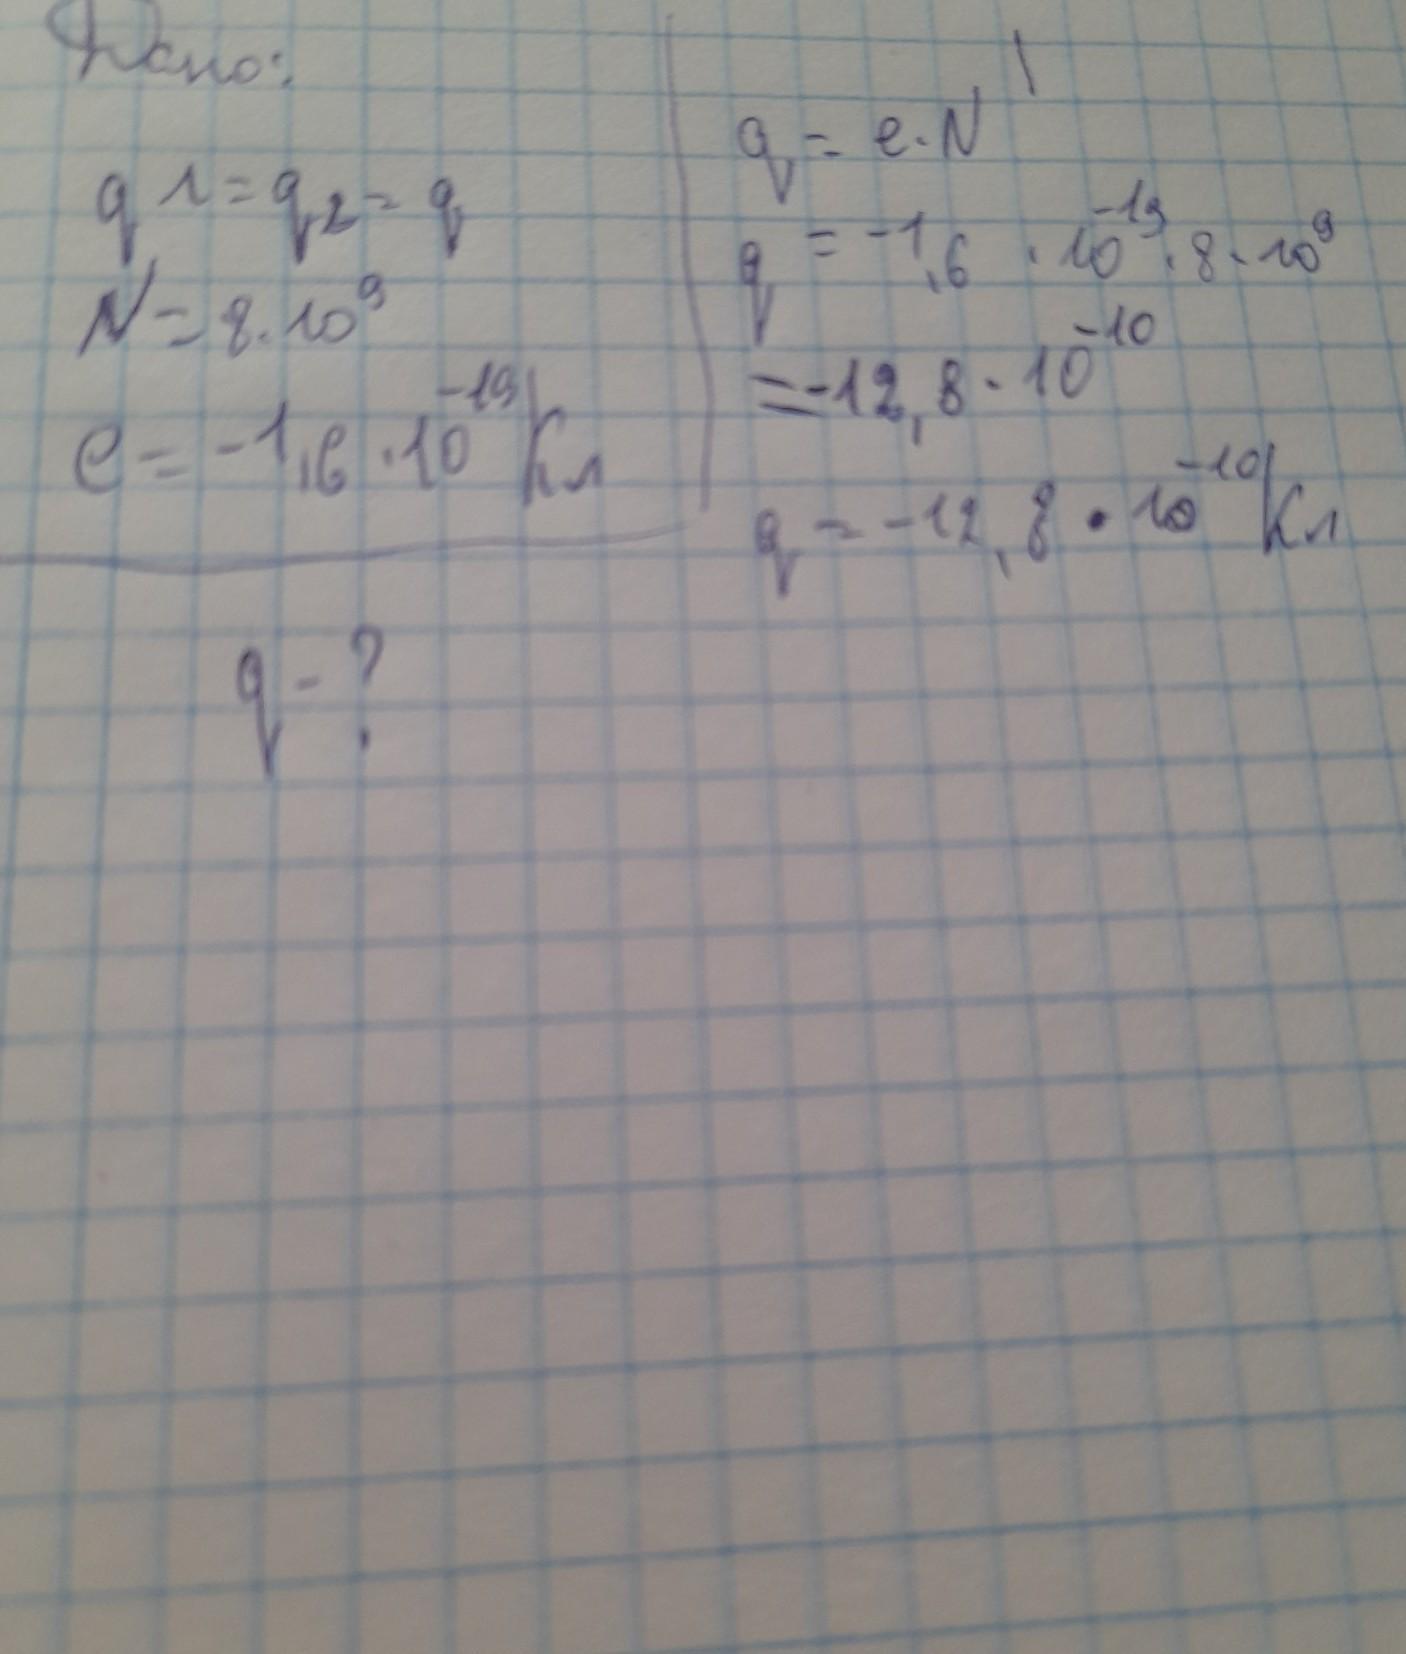 Дано:
q1 = q₂ = q
N = 8·10⁹
e = -1,6·10⁻¹⁹ Кл
q - ?
q = e·N
q = -1,6 · 10⁻¹⁹ · 8 · 10⁹
= -12,8 · 10⁻¹⁰
q = -12,8 · 10⁻¹⁰ Кл